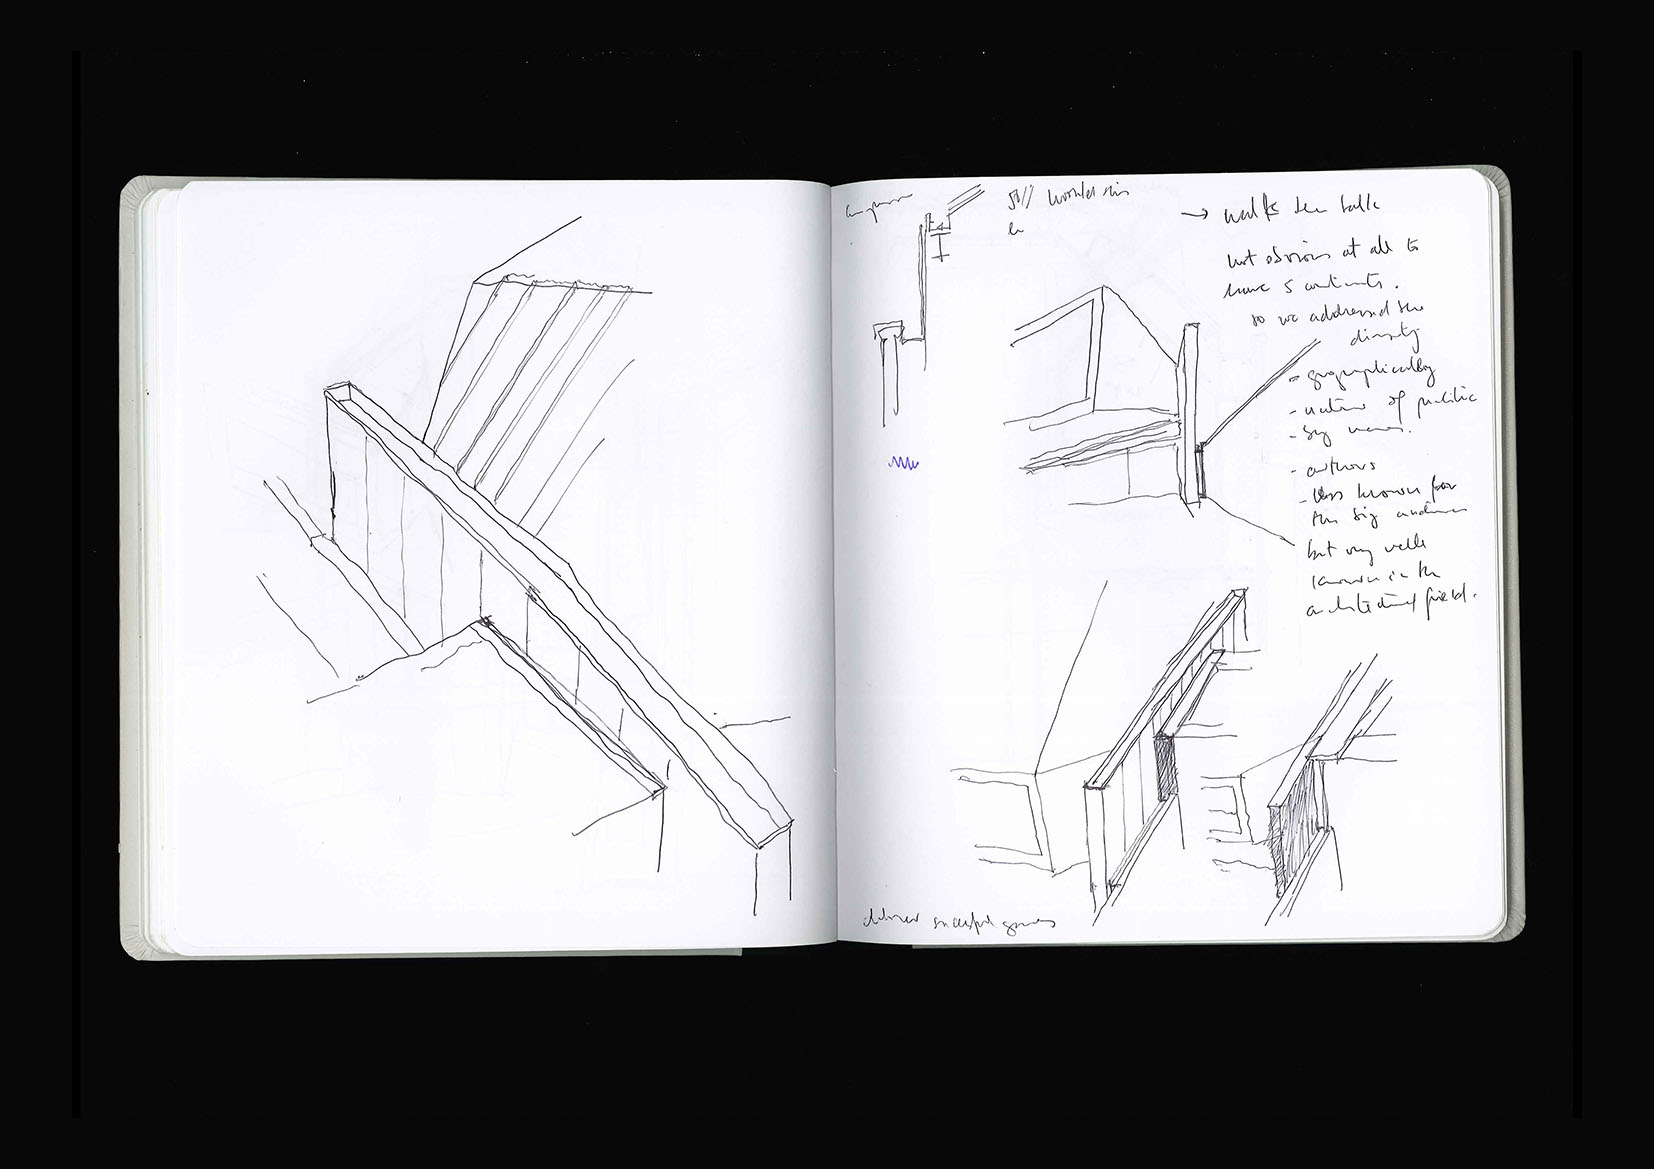 → walks the talk
not obvious at all to
have 5 continents.
so we addressed the
diversity
- geographically
- nature of public
- big names.
- authors
- less known for
the big audience
but very well
known in the
architectural field.
deliver successful games